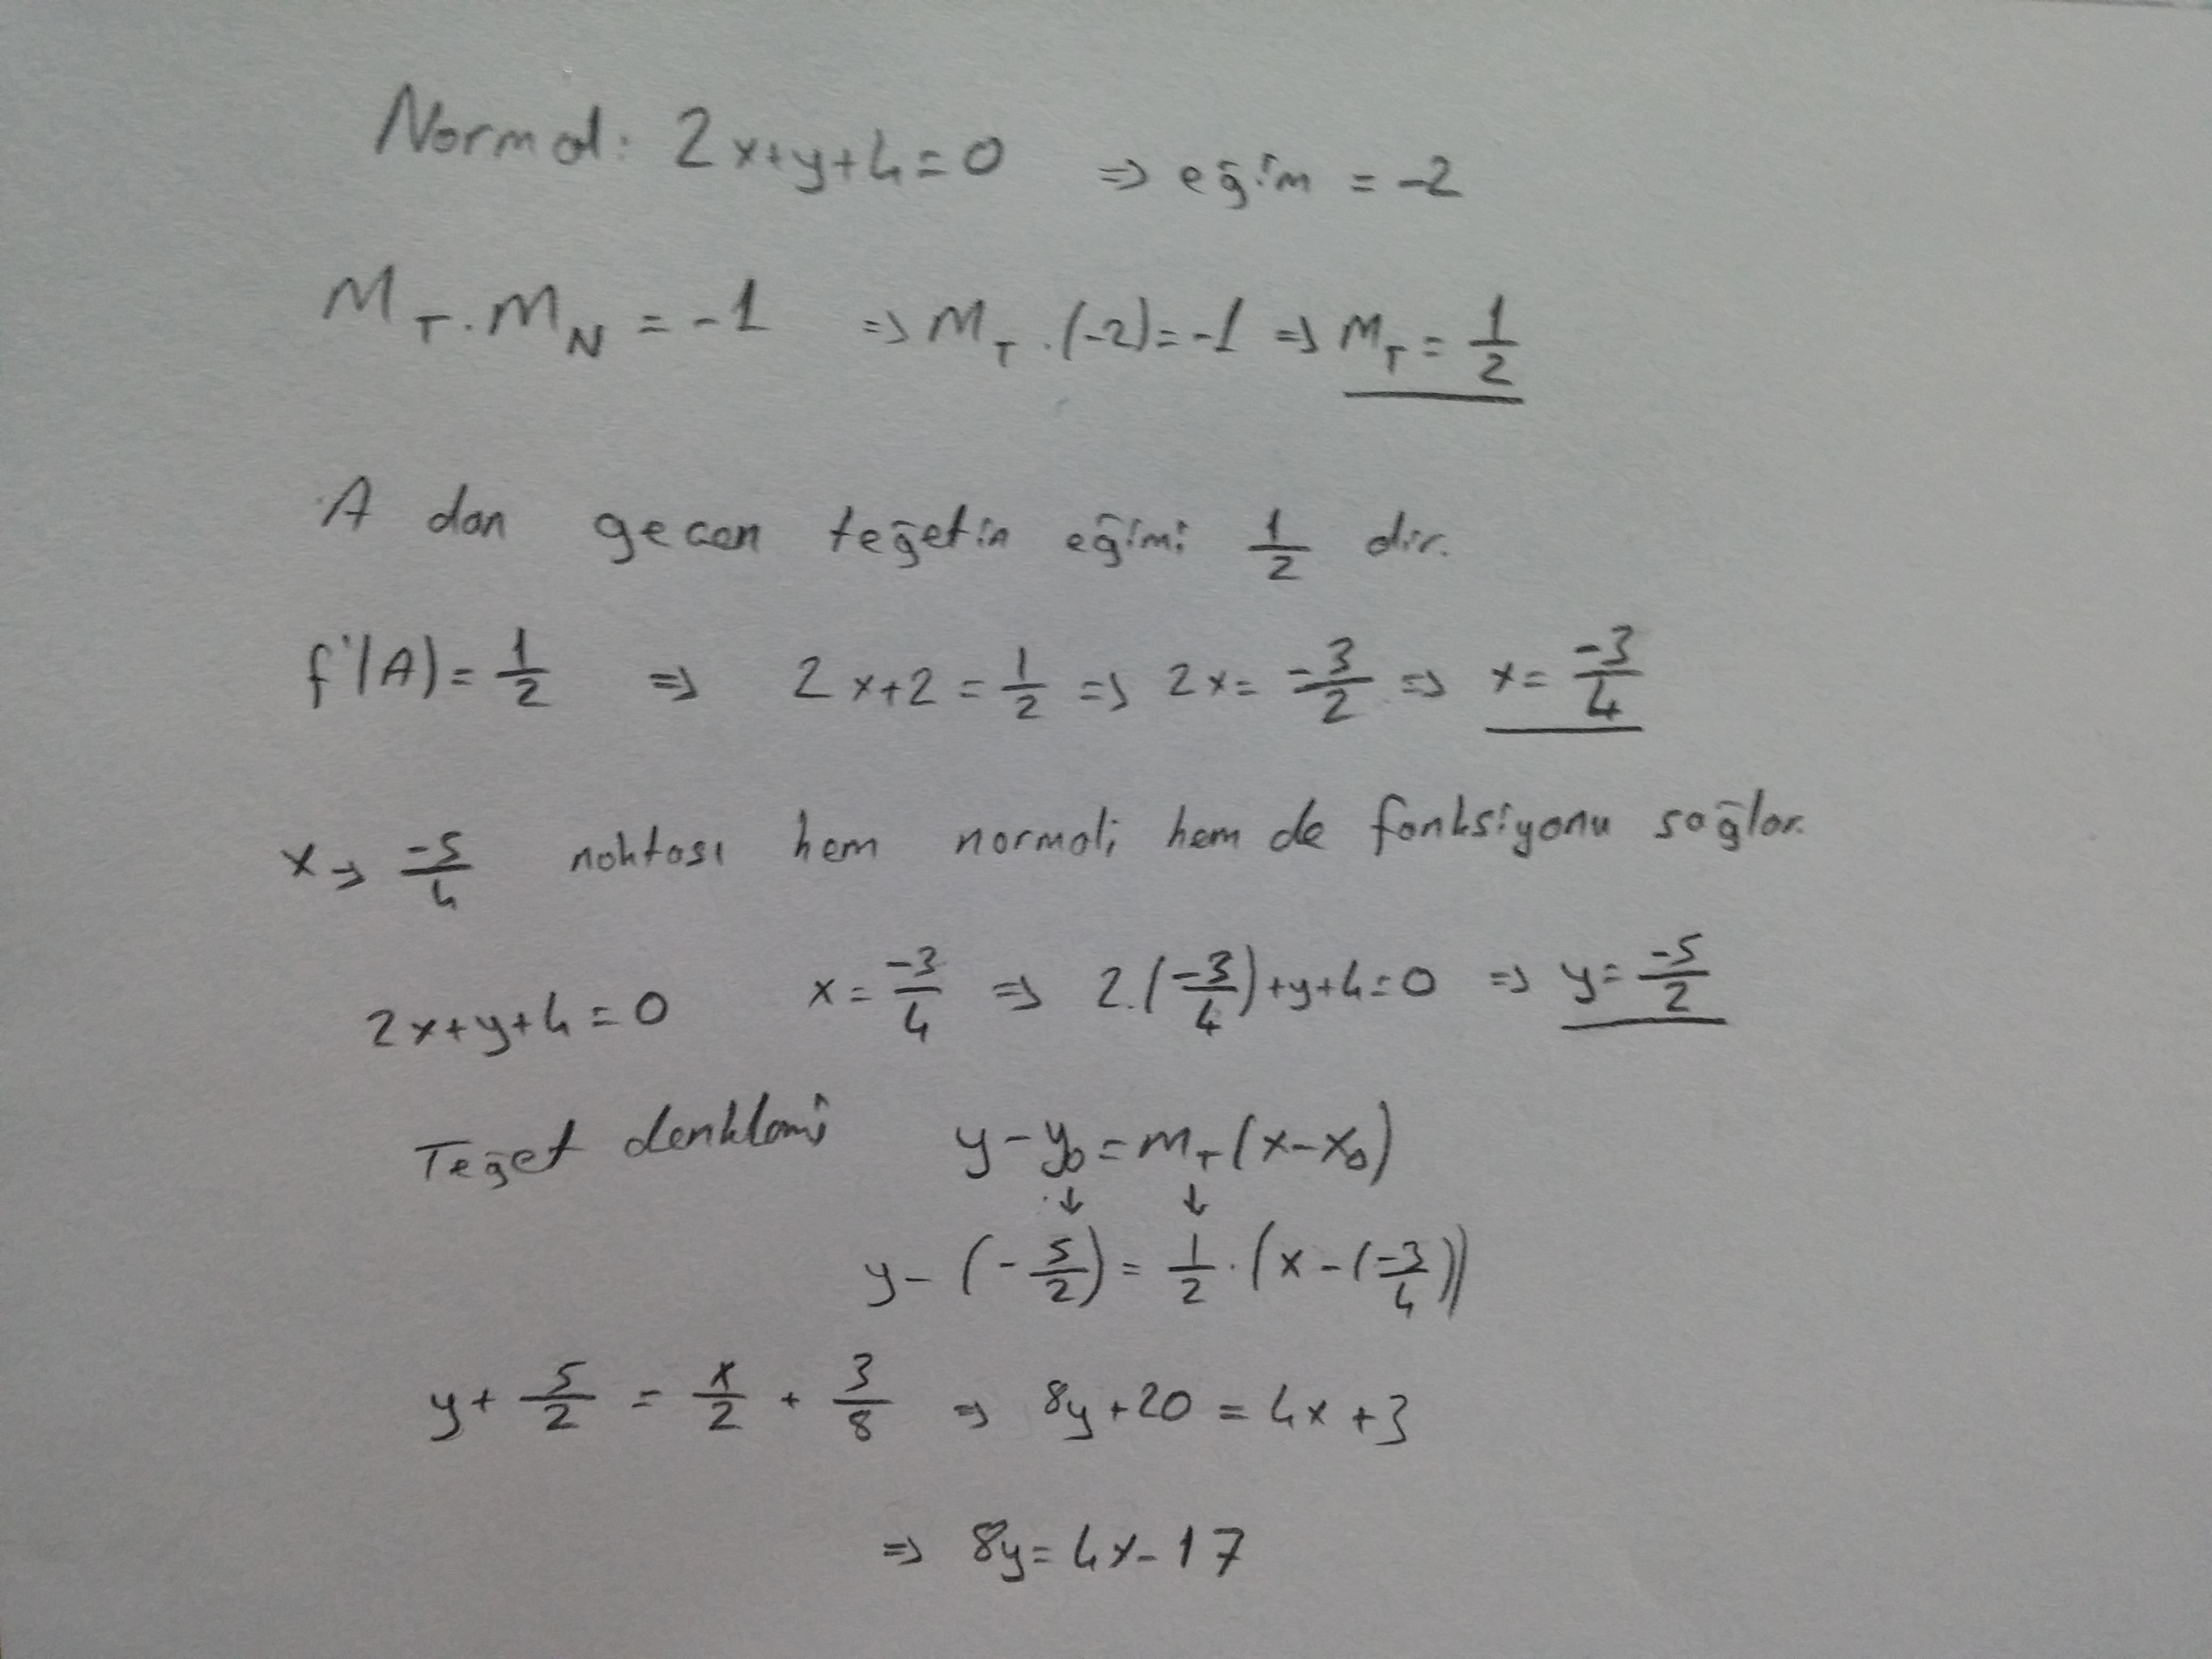 Normal: 2x+y+4=0 => eğim = -2
M_T . M_N = -1 => M_T . (-2) = -1 => M_T = 1/2
A dan geçen teğetin eğimi 1/2 dir.
f'(A) = 1/2 => 2x+2 = 1/2 => 2x = -3/2 => x = -3/4
x => -5/4 noktası hem normali hem de fonksiyonu sağlar.
2x+y+4=0 x = -3/4 => 2.(-3/4)+y+4=0 => y = -5/2
Teğet denklemi y-y₀ = m_T (x-x₀)
↓ ↓
y-(-5/2) = 1/2 . (x-(-3/4))
y + 5/2 = x/2 + 3/8 => 8y+20 = 4x+3
=> 8y = 4x-17